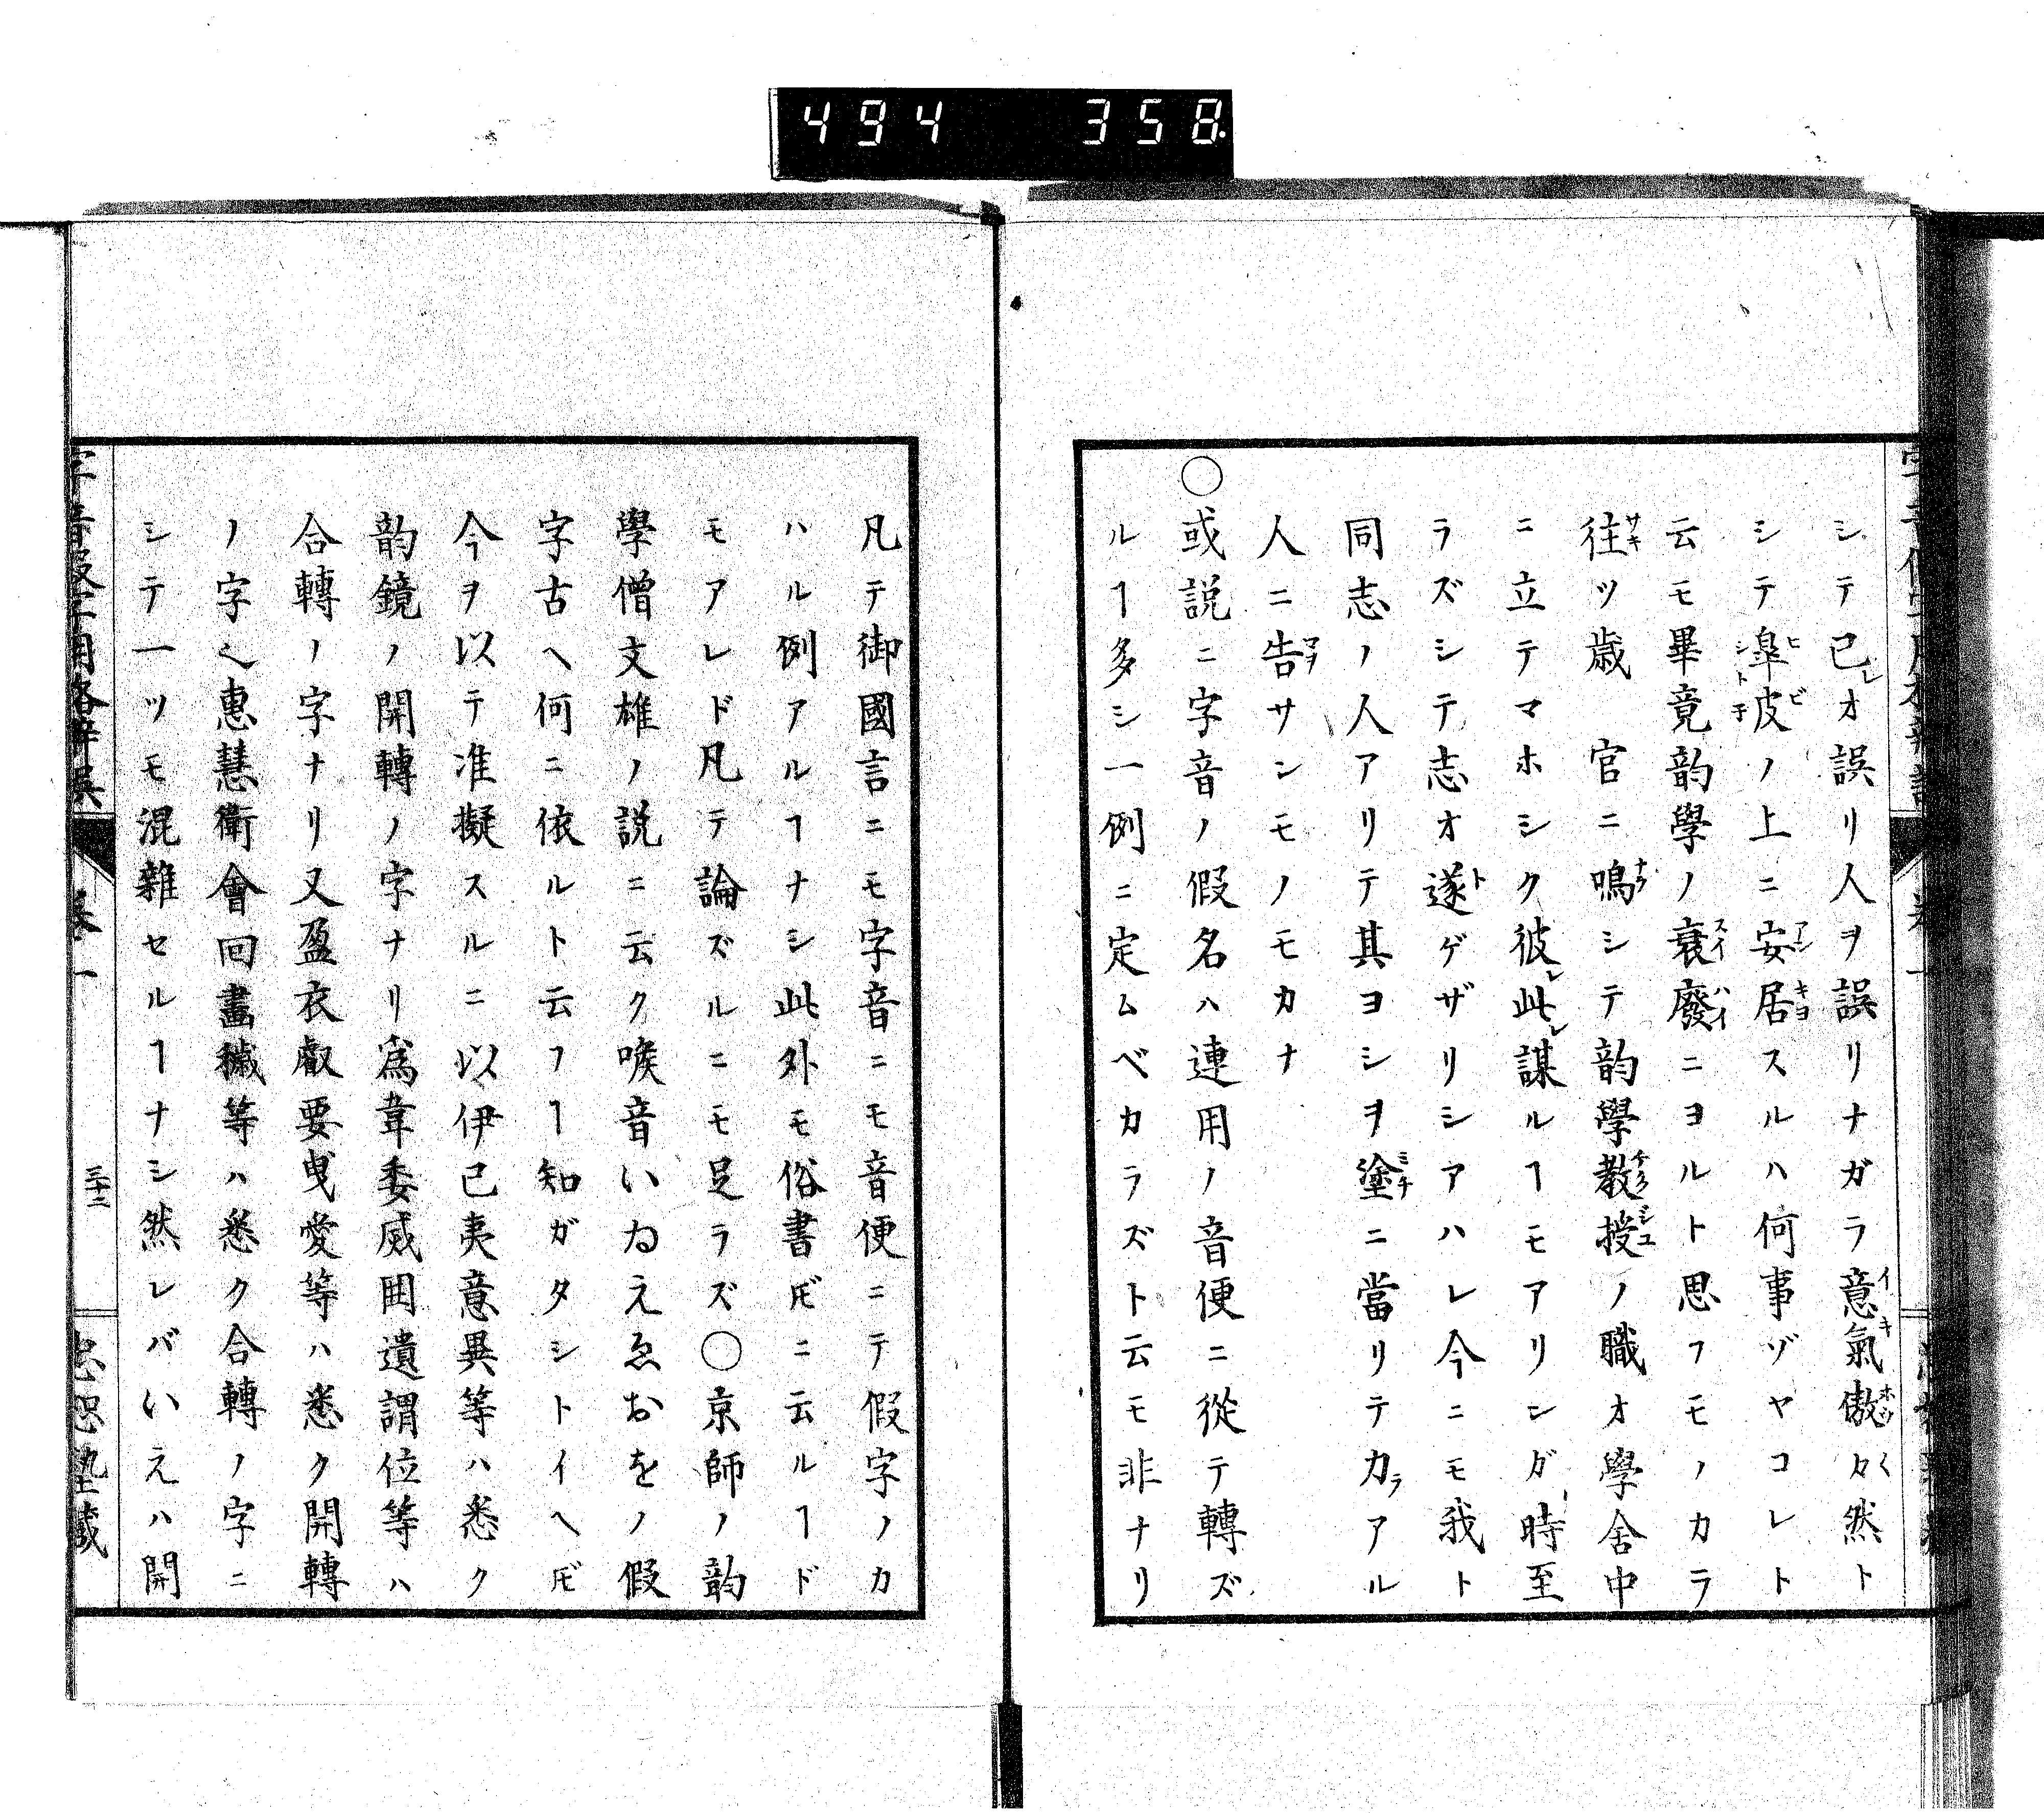 494 358
シテ已レオ誤リ人ヲ誤リナガラ意氣傲々然ト
シテ皐皮ノ上ニ安居スルハ何事ゾヤコレト
云モ畢竟韵學ノ衰廢ニヨルト思フモノカラ
往ツ歳 官ニ鳴シテ韵學教授ノ職オ學舍中
ニ立テマホシク彼レ此レ謀ルヿモアリシガ時至
ラズシテ志オ遂ゲザリシアハレ今ニモ我ト
同志ノ人アリテ其ヨシヲ塗ニ當リテカラアル
人ニ告サンモノモカナ
○或説ニ字音ノ假名ハ連用ノ音便ニ從テ轉ズ
ルヿ多シ一例ニ定ムベカラズト云モ非ナリ
凡テ御國言ニモ字音ニモ音便ニテ假字ノカ
ハル例アルヿナシ此外モ俗書𪜈ニ云ルヿド
モアレド凡テ論ズルニモ足ラズ○京師ノ韵
學僧文雄ノ説ニ云ク喉音いゐえゑおをノ假
字古ヘ何ニ依ルト云フヿ知ガタシトイヘ𪜈
今ヲ以テ准擬スルニ以伊已夷意異等ハ悉ク
韵鏡ノ開轉ノ字ナリ爲韋委威囲遺謂位等ハ
合轉ノ字ナリ又盈衣叡要曳愛等ハ悉ク開轉
ノ字也惠慧衛會回畫穢等ハ悉ク合轉ノ字ニ
シテ一ツモ混雜セルヿナシ然レバいえハ開
三十二